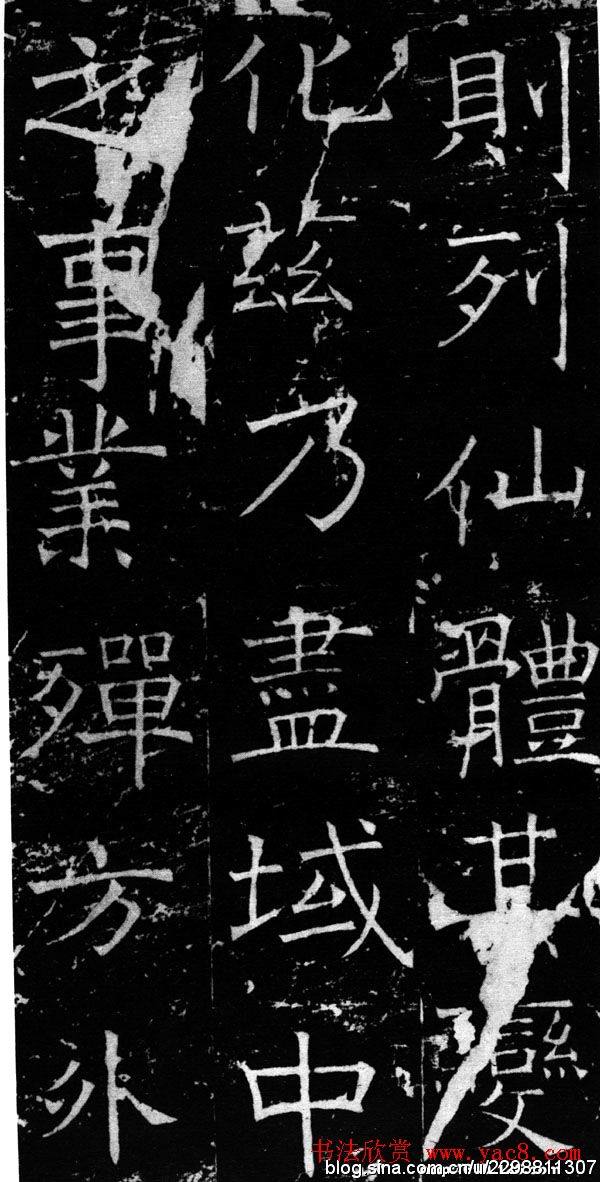 則列仙體其變
化兹乃盡域中
之事業殫方外
书法欣赏 www.yac8.com
blog.sina.com.cn/u/2298811307